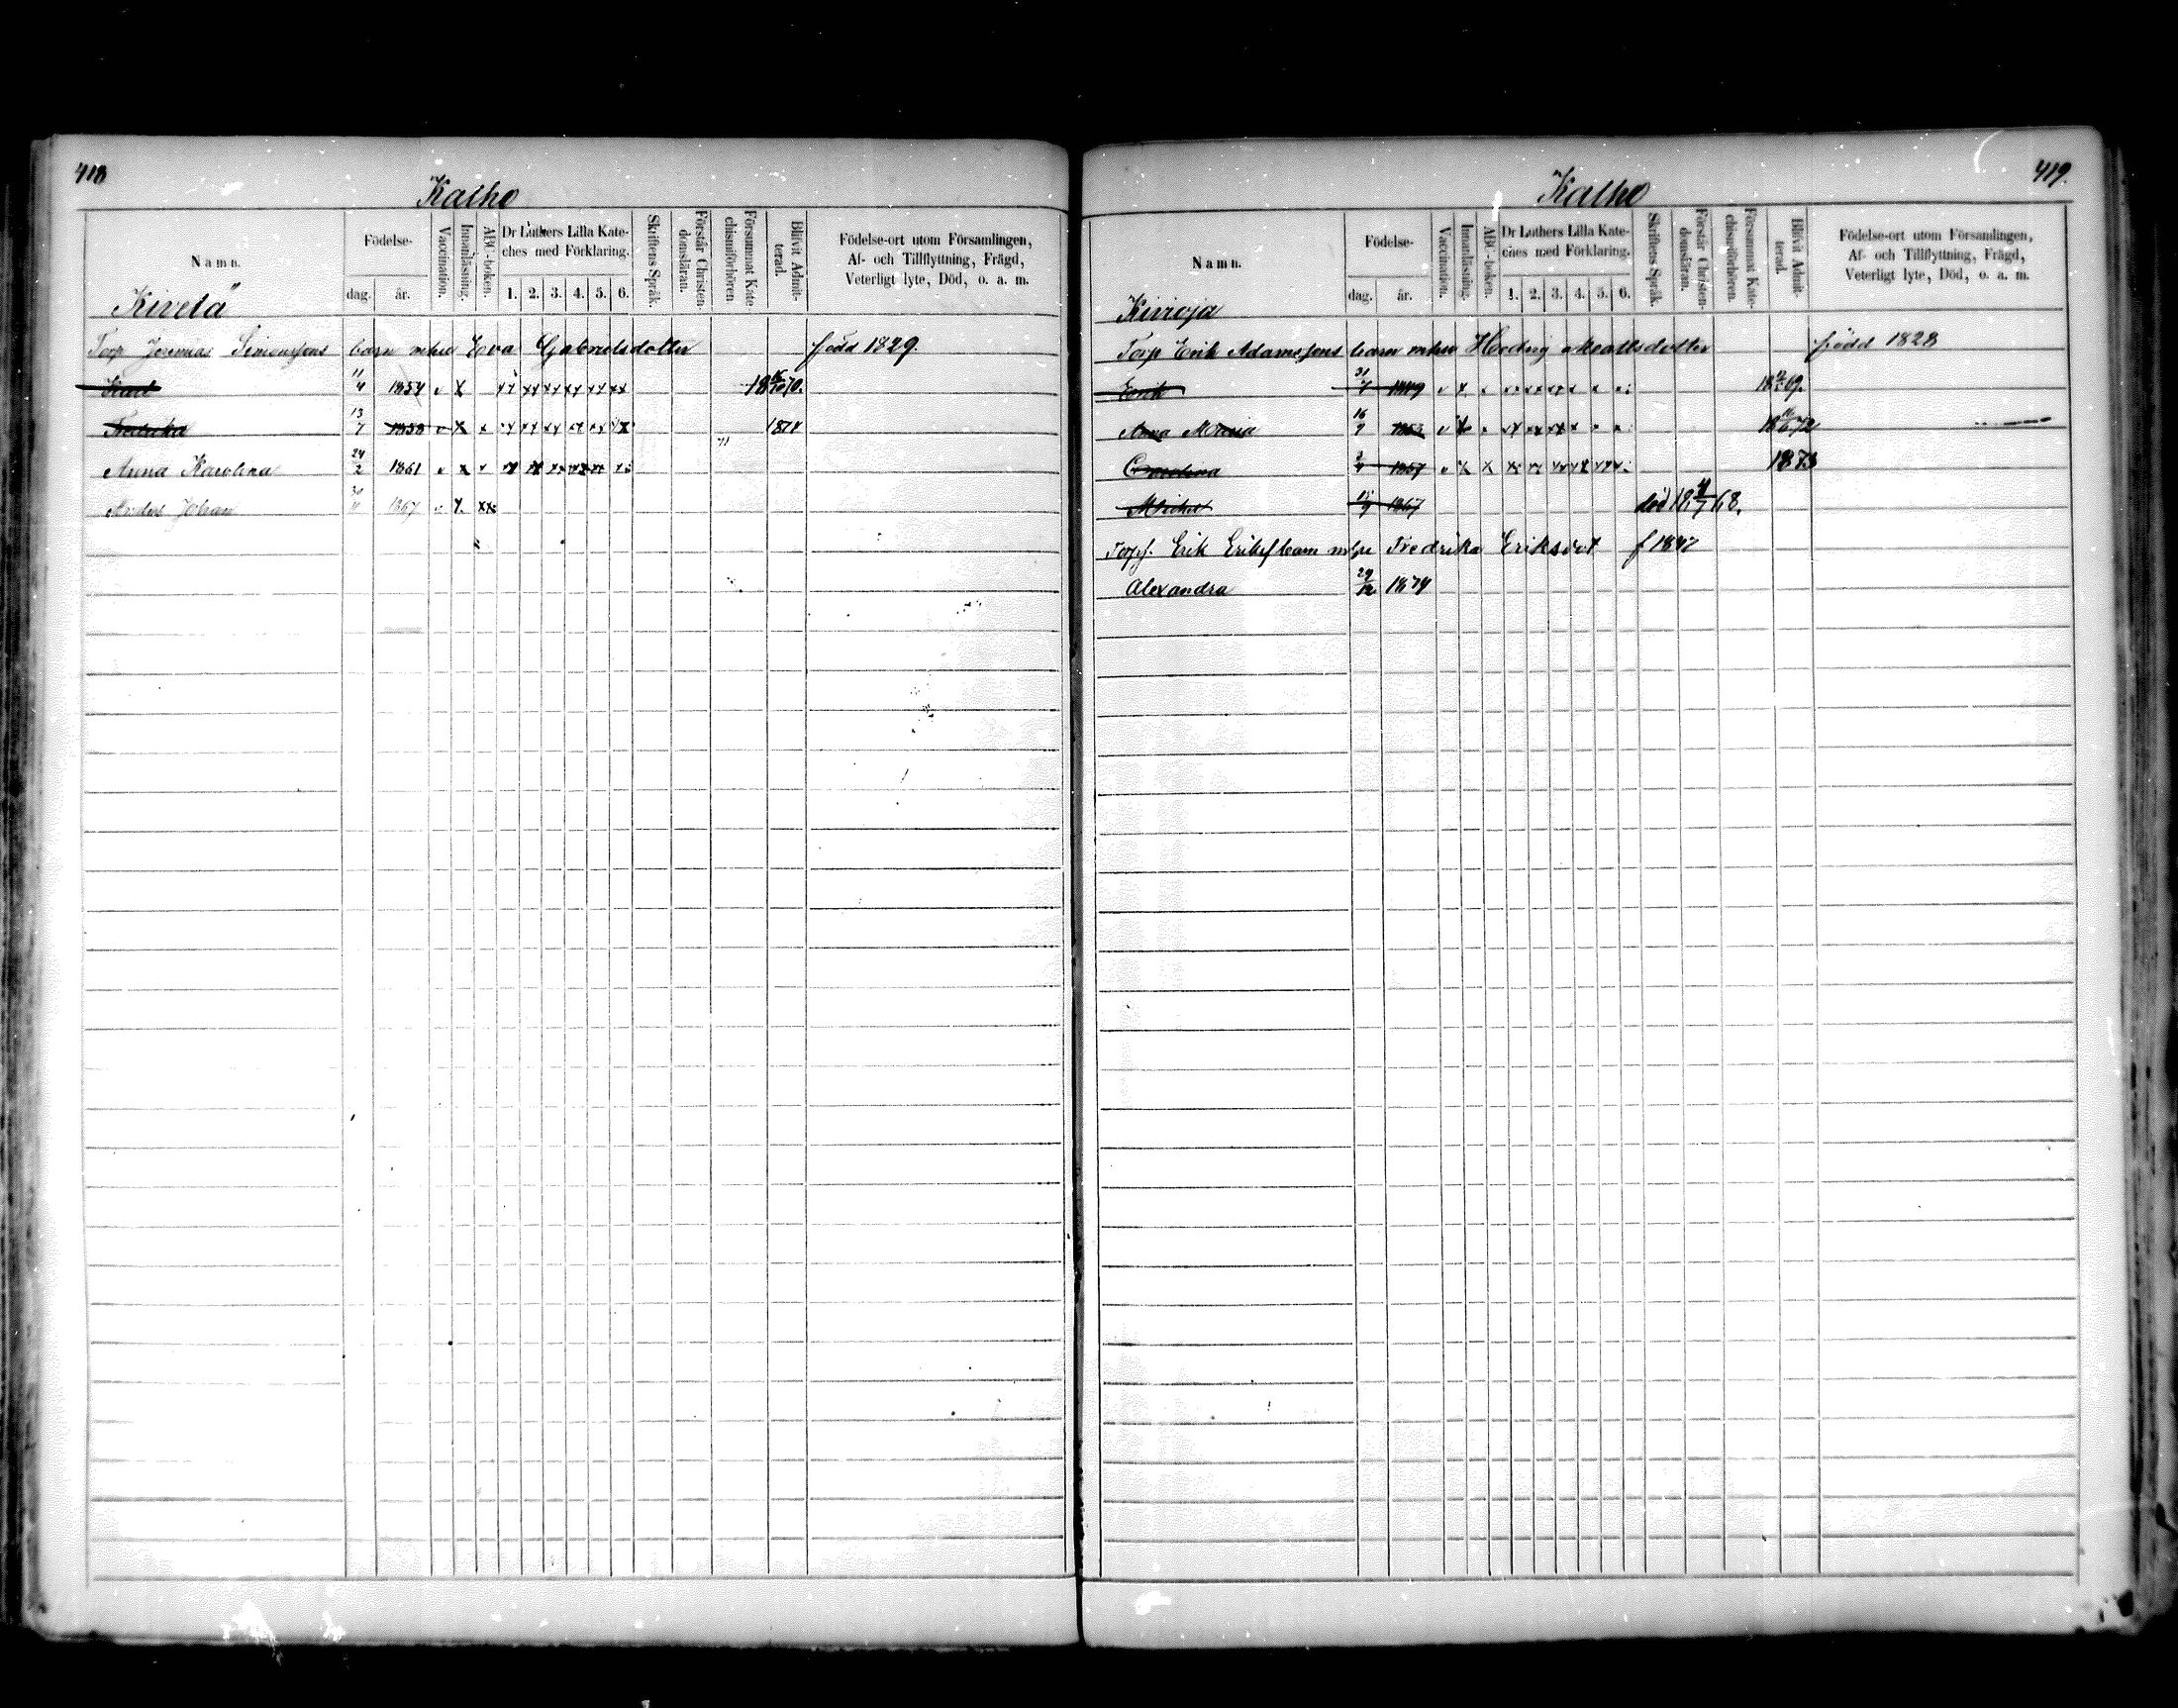 418
Kalho
Namn. Födelse- dag. år. Vaccination. Innanläsning. ABC-boken. Dr Luthers Lilla Kate-ches med Förklaring. 1. 2. 3. 4. 5. 6. Skriftens Språk. Förstår Christen-domsläran. Försummat Kate-chismiförhören. Blifvit Admit-terad. Födelse-ort utom Församlingen, Af- och Tillflyttning, Frägd, Veterligt lyte, Död, o. a. m.
Kivelä
Torp Jeremias Simonssons barn m hu Eva Gabrielsdotter född 1829.
Karl 11/4 1854 v x xx xx xx xx xx xx 18 70.
Fredrika 13/7 1858 v x x xx xx xx xx xx xx 1874
Anna Karolina 24/2 1861 v x x xx xx xx xx xx
Anders Johan 30/11 1867 v x xx
419.
Kalho
Namn. Födelse- dag. år. Vaccination. Innanläsning. ABC-boken. Dr Luthers Lilla Kate-ches med Förklaring. 1. 2. 3. 4. 5. 6. Skriftens Språk. Förstår Christen-domsläran. Försummat Kate-chismiförhören. Blifvit Admit-terad. Födelse-ort utom Församlingen, Af- och Tillflyttning, Frägd, Veterligt lyte, Död, o. a. m.
Kivioja
Torp Erik Adamssons barn m hu Hedvig Mattsdotter född 1828
Erik 31/7 1849 v x x 18 69.
Anna Maria 16/7 1853 v x x 18 72
Carolina 2/4 1857 v x x 1873
Michel 15/9 1867 död 18 68.
Torpf. Erik Eriksf barn m hu Fredrika Eriksdot f 1847
Alexandra 29/12 1874